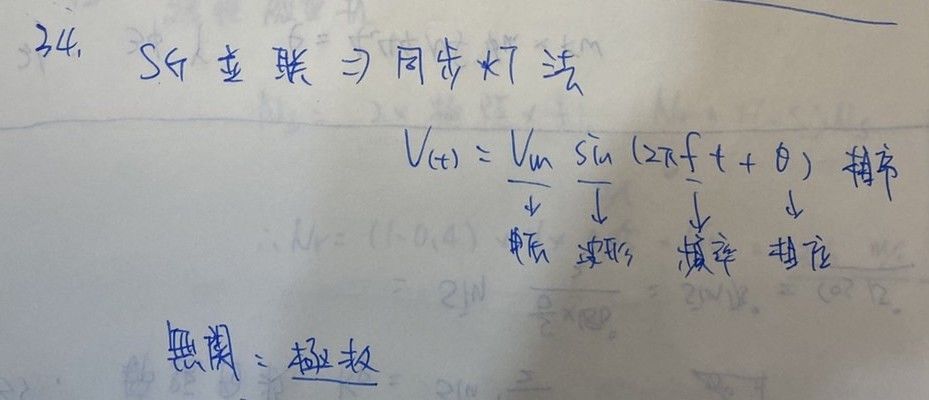 34. SG 並联 ⇒ 同步灯法
V(t) = Vm sin (2πft + θ) 相序
↓ ↓ ↓ ↓
電压 波形 頻率 相位
無関 = 極数